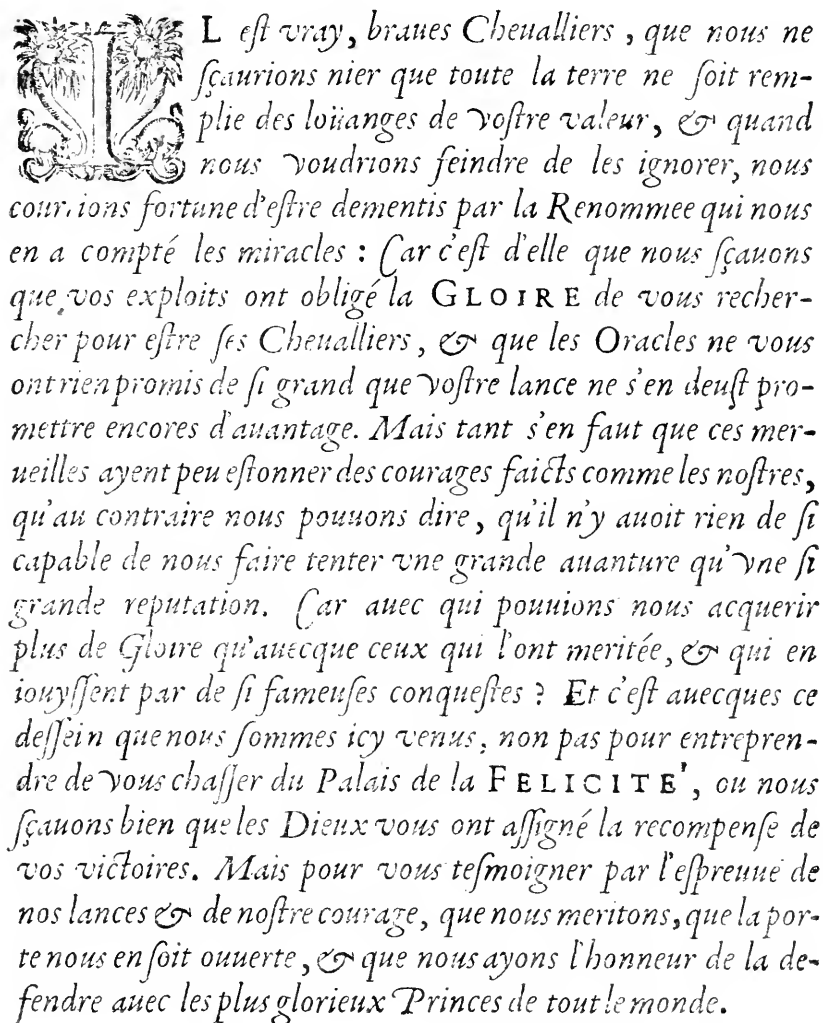 IL eſt vray, braues Cheualliers, que nous ne
ſçaurions nier que toute la terre ne ſoit rem-
plie des loüanges de voſtre valeur, & quand
nous voudrions feindre de les ignorer, nous
courrions fortune d'eſtre dementis par la Renommee qui nous
en a compté les miracles : Car c'eſt d'elle que nous ſçauons
que vos exploits ont obligé la GLOIRE de vous recher-
cher pour eſtre ſes Cheualliers, & que les Oracles ne vous
ont rien promis de ſi grand que voſtre lance ne s'en deuſt pro-
mettre encores d'auantage. Mais tant s'en faut que ces mer-
ueilles ayent peu eſtonner des courages faicts comme les noſtres,
qu'au contraire nous pouuons dire, qu'il n'y auoit rien de ſi
capable de nous faire tenter vne grande auanture qu'vne ſi
grande reputation. Car auec qui pouuions nous acquerir
plus de Gloire qu'auecque ceux qui l'ont meritée, & qui en
iouyſſent par de ſi fameuſes conqueſtes ? Et c'eſt auecques ce
deſſein que nous ſommes icy venus, non pas pour entrepren-
dre de vous chaſſer du Palais de la FELICITE', ou nous
ſçauons bien que les Dieux vous ont aſſigné la recompenſe de
vos victoires. Mais pour vous teſmoigner par l'eſpreuue de
nos lances & de noſtre courage, que nous meritons, que la por-
te nous en ſoit ouuerte, & que nous ayons l'honneur de la de-
fendre auec les plus glorieux Princes de tout le monde.